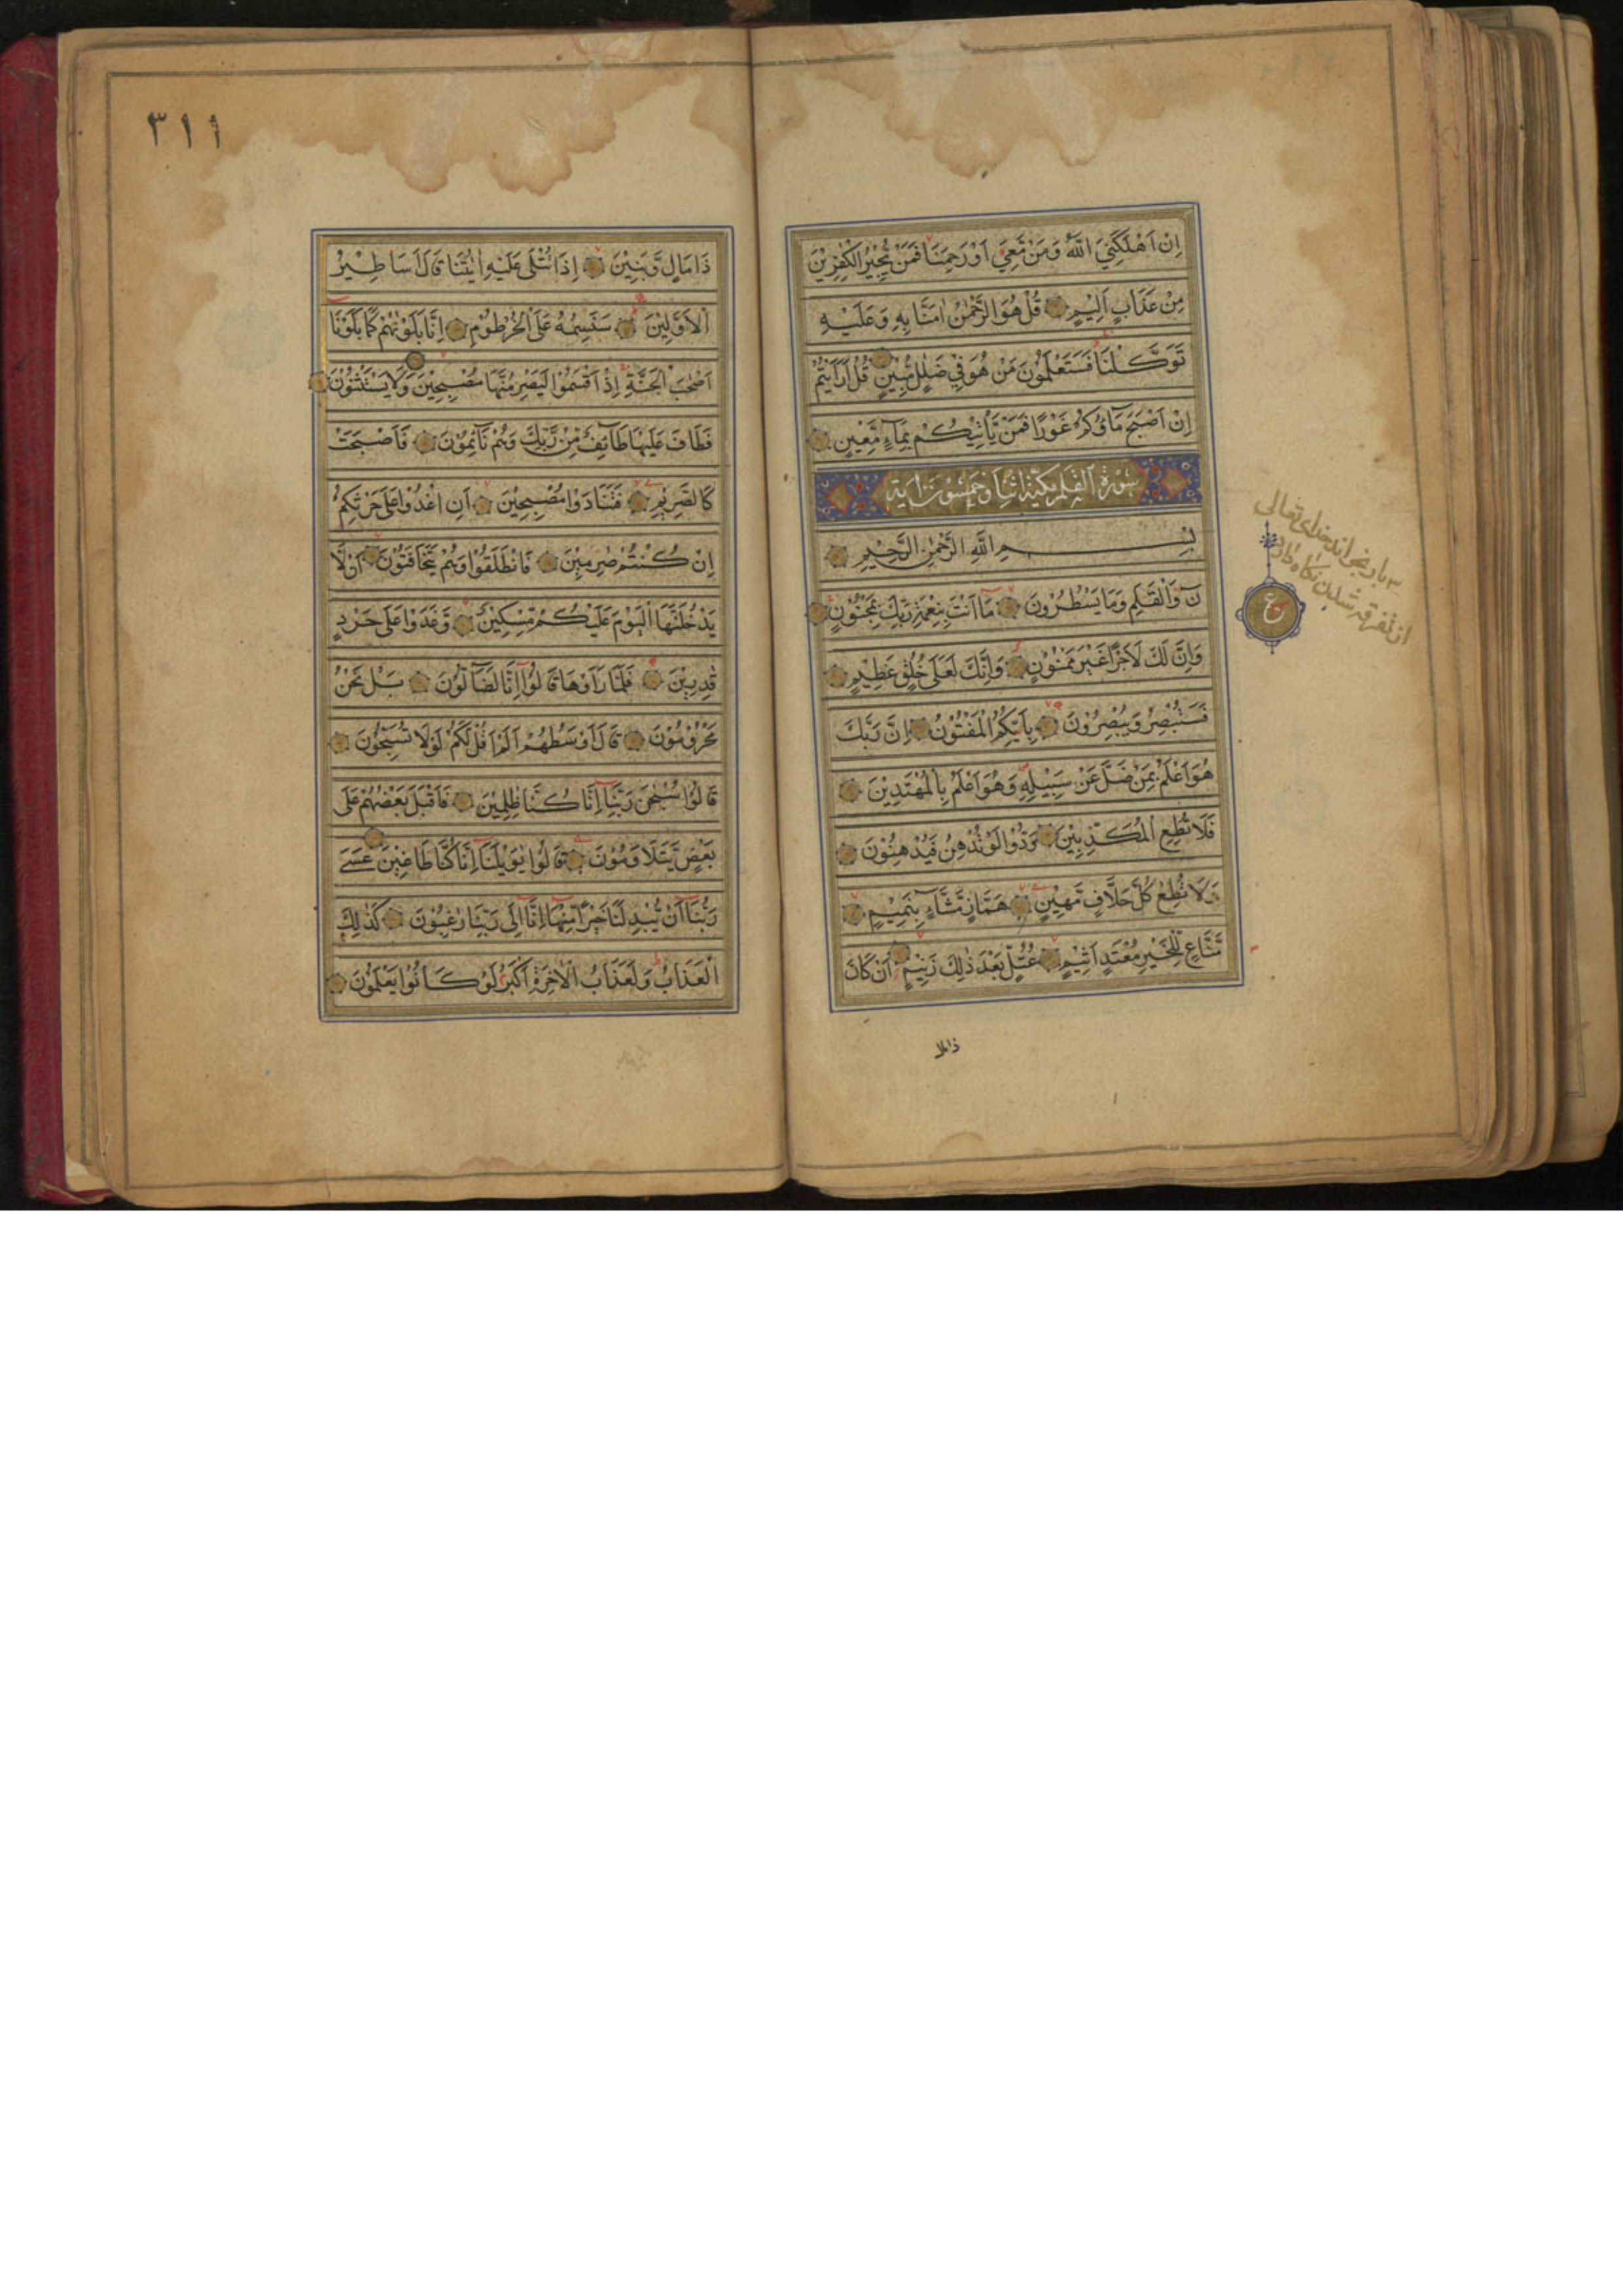 اِنْ اَهْلَكَنِيَ اللّٰهُ وَمَنْ مَّعِيَ اَوْ رَحِمَنَا فَمَنْ يُّجِيْرُ الْكٰفِرِيْنَ
مِنْ عَذَابٍ اَلِيْمٍ قُلْ هُوَ الرَّحْمٰنُ اٰمَنَّا بِهٖ وَعَلَيْهِ
تَوَكَّلْنَا فَسَتَعْلَمُوْنَ مَنْ هُوَ فِيْ ضَلٰلٍ مُّبِيْنٍ قُلْ اَرَاَيْتُمْ
اِنْ اَصْبَحَ مَآؤُكُمْ غَوْرًا فَمَنْ يَّاْتِيْكُمْ بِمَآءٍ مَّعِيْنٍ
سُوْرَةُ الْقَلَمِ مَكِّيَّةٌ اثْنَتَا وَخَمْسُوْنَ اٰيَة
بِسْمِ اللّٰهِ الرَّحْمٰنِ الرَّحِيْمِ
نٓ وَالْقَلَمِ وَمَا يَسْطُرُوْنَ مَا اَنْتَ بِنِعْمَةِ رَبِّكَ بِمَجْنُوْنٍ
وَاِنَّ لَكَ لَاَجْرًا غَيْرَ مَمْنُوْنٍ وَاِنَّكَ لَعَلٰى خُلُقٍ عَظِيْمٍ
فَسَتُبْصِرُ وَيُبْصِرُوْنَ بِاَيِّكُمُ الْمَفْتُوْنُ اِنَّ رَبَّكَ
هُوَ اَعْلَمُ بِمَنْ ضَلَّ عَنْ سَبِيْلِهٖ وَهُوَ اَعْلَمُ بِالْمُهْتَدِيْنَ
فَلَا تُطِعِ الْمُكَذِّبِيْنَ وَدُّوْا لَوْ تُدْهِنُ فَيُدْهِنُوْنَ
وَلَا تُطِعْ كُلَّ حَلَّافٍ مَّهِيْنٍ هَمَّازٍ مَّشَّآءٍ بِنَمِيْمٍ
مَّنَّاعٍ لِّلْخَيْرِ مُعْتَدٍ اَثِيْمٍ عُتُلٍّ بَعْدَ ذٰلِكَ زَنِيْمٍ اَنْ كَانَ
ذامال
بار بخواند خدای تعالی
از تفرقه شدن نکاه دارد
ع
٣١١
ذَا مَالٍ وَّبَنِيْنَ اِذَا تُتْلٰى عَلَيْهِ اٰيٰتُنَا قَالَ اَسَاطِيْرُ
الْاَوَّلِيْنَ سَنَسِمُهٗ عَلَى الْخُرْطُوْمِ اِنَّا بَلَوْنٰهُمْ كَمَا بَلَوْنَا
اَصْحٰبَ الْجَنَّةِ اِذْ اَقْسَمُوْا لَيَصْرِمُنَّهَا مُصْبِحِيْنَ وَلَا يَسْتَثْنُوْنَ
فَطَافَ عَلَيْهَا طَآئِفٌ مِّنْ رَّبِّكَ وَهُمْ نَآئِمُوْنَ فَاَصْبَحَتْ
كَالصَّرِيْمِ فَتَنَادَوْا مُصْبِحِيْنَ اَنِ اغْدُوْا عَلٰى حَرْثِكُمْ
اِنْ كُنْتُمْ صٰرِمِيْنَ فَانْطَلَقُوْا وَهُمْ يَتَخَافَتُوْنَ اَنْ لَّا
يَدْخُلَنَّهَا الْيَوْمَ عَلَيْكُمْ مِّسْكِيْنٌ وَّغَدَوْا عَلٰى حَرْدٍ
قٰدِرِيْنَ فَلَمَّا رَاَوْهَا قَالُوْا اِنَّا لَضَآلُّوْنَ بَلْ نَحْنُ
مَحْرُوْمُوْنَ قَالَ اَوْسَطُهُمْ اَلَمْ اَقُلْ لَّكُمْ لَوْلَا تُسَبِّحُوْنَ
قَالُوْا سُبْحٰنَ رَبِّنَا اِنَّا كُنَّا ظٰلِمِيْنَ فَاَقْبَلَ بَعْضُهُمْ عَلٰى
بَعْضٍ يَّتَلَاوَمُوْنَ قَالُوْا يٰوَيْلَنَا اِنَّا كُنَّا طَاغِيْنَ عَسٰى
رَبُّنَا اَنْ يُّبْدِلَنَا خَيْرًا مِّنْهَا اِنَّا اِلٰى رَبِّنَا رٰغِبُوْنَ كَذٰلِكَ
الْعَذَابُ وَلَعَذَابُ الْاٰخِرَةِ اَكْبَرُ لَوْ كَانُوْا يَعْلَمُوْنَ